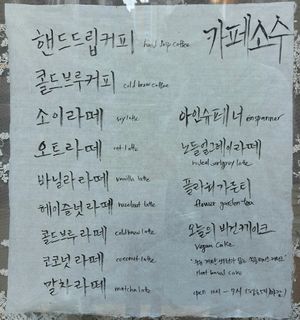 핸드드립커피 hand drip coffee
카페소수
콜드브루커피 cold brew coffee
소이라떼 soy latte
오트라떼 oat latte
바닐라라떼 vanilla latte
헤이즐넛라떼 hazelnut latte
콜드브루라떼 coldbrew latte
코코넛라떼 coconut latte
말차라떼 matcha latte
아인슈페너 einspanner
노들얼그레이라떼
nodeul earlgrey latte
플라워가든티
flower garden tea
오늘의 비건케이크
vegan cake
plant based cake
open 11시 - 7시